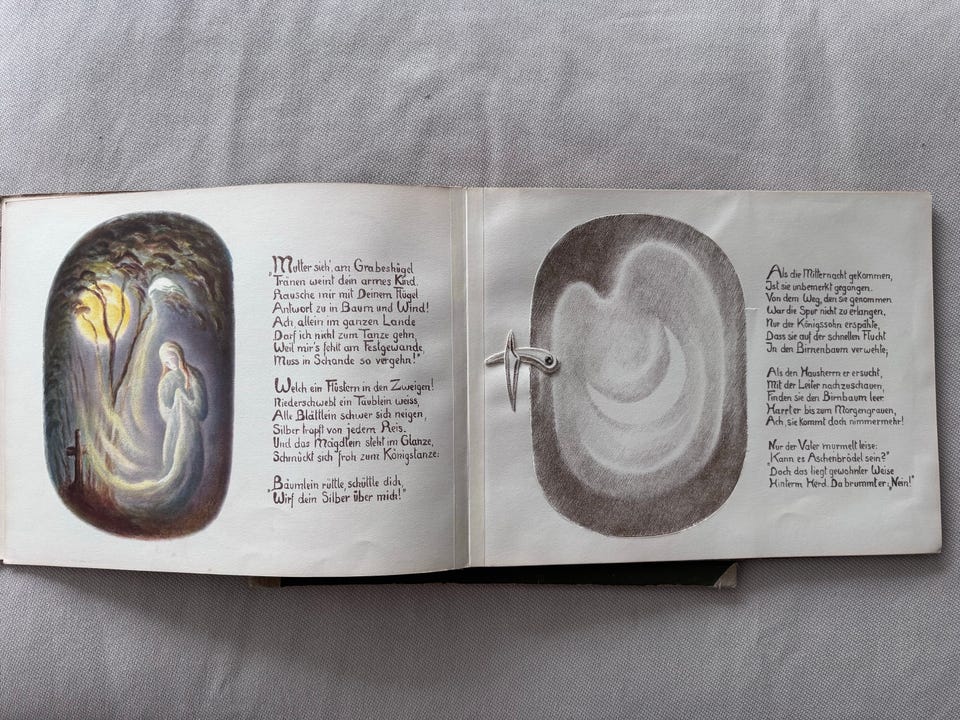 Mutter sieh', am Grabeshügel
"Tränen weint dein armes Kind.
Rausche mir mit Deinem Flügel
Antwort zu in Baum und Wind!
Ach, allein im ganzen Lande
Darf ich nicht zum Tanze gehn,
Weil mir's fehlt am Festgewande,
Muss in Schande so vergehn!"
Welch ein Flüstern in den Zweigen!
Niederschwebt ein Täublein weiss,
Alle Blättlein schwer sich neigen,
Silber tropft von jedem Reis.
Und das Mägdlein steht im Glanze,
Schmückt sich froh zum Königstanze:
Bäumlein rüttle, schüttle dich,
"Wirf dein Silber über mich!"
Als die Mitternacht gekommen,
Ist sie unbemerkt gegangen.
Von dem Weg, den sie genommen
War die Spur nicht zu erlangen,
Nur der Königssohn erspähte,
Dass sie auf der schnellen Flucht
In den Birnenbaum verwehte;
Als den Hausherrn er ersucht,
Mit der Leiter nachzuschauen,
Finden sie den Birnbaum leer.
Harrt er bis zum Morgengrauen,
Ach, sie kommt doch nimmermehr!
Nur der Vater murmelt leise:
"Kann es Aschenbrödel sein?"
"Doch das liegt gewohnter Weise
Hinterm Herd. Da brummt er: "Nein!"